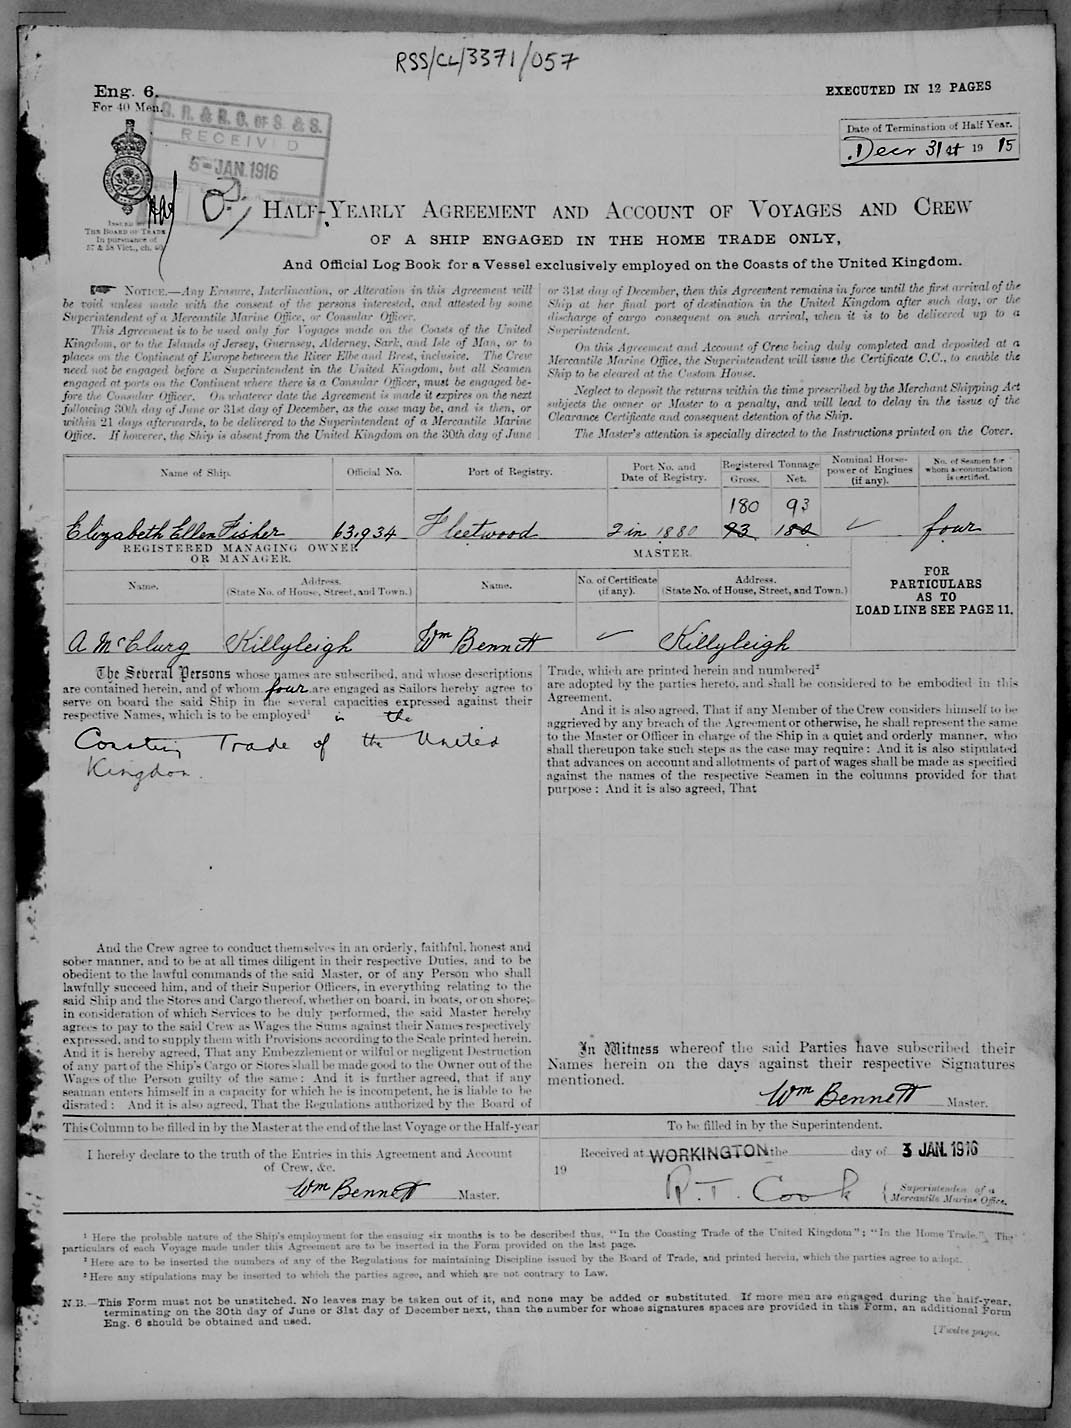 RSS/CL/3371/057
Eng. 6.
For 40 Men.
EXECUTED IN 12 PAGES
G. R. & R. G. OF S. & S.
RECEIVED
5-JAN.1916
Date of Termination of Half Year.
Decr 31st 1915
ISSUED BY
THE BOARD OF TRADE
In pursuance of
57 & 58 Vict., ch. 60
HALF-YEARLY AGREEMENT AND ACCOUNT OF VOYAGES AND CREW
OF A SHIP ENGAGED IN THE HOME TRADE ONLY,
And Official Log Book for a Vessel exclusively employed on the Coasts of the United Kingdom.
NOTICE.—Any Erasure, Interlineation, or Alteration in this Agreement will
be void unless made with the consent of the persons interested, and attested by some
Superintendent of a Mercantile Marine Office, or Consular Officer.
This Agreement is to be used only for Voyages made on the Coasts of the United
Kingdom, or to the Islands of Jersey, Guernsey, Alderney, Sark, and Isle of Man, or to
places on the Continent of Europe between the River Elbe and Brest, inclusive. The Crew
need not be engaged before a Superintendent in the United Kingdom, but all Seamen
engaged at ports on the Continent where there is a Consular Officer, must be engaged be-
fore the Consular Officer. On whatever date the Agreement is made it expires on the next
following 30th day of June or 31st day of December, as the case may be, and is then, or
within 21 days afterwards, to be delivered to the Superintendent of a Mercantile Marine
Office. If however, the Ship is absent from the United Kingdom on the 30th day of June
or 31st day of December, then this Agreement remains in force until the first arrival of the
Ship at her final port of destination in the United Kingdom after such day, or the
discharge of cargo consequent on such arrival, when it is to be delivered up to a
Superintendent.
On this Agreement and Account of Crew being duly completed and deposited at a
Mercantile Marine Office, the Superintendent will issue the Certificate C.C., to enable the
Ship to be cleared at the Custom House.
Neglect to deposit the returns within the time prescribed by the Merchant Shipping Act
subjects the owner or Master to a penalty, and will lead to delay in the issue of the
Clearance Certificate and consequent detention of the Ship.
The Master's attention is specially directed to the Instructions printed on the Cover.
Name of Ship.
Official No.
Port of Registry.
Port No. and
Date of Registry.
Registered Tonnage
Gross.
Net.
Nominal Horse-
power of Engines
(if any).
No. of Seamen for
whom accommodation
is certified.
180 93
Elizabeth Ellen Fisher 63,934 Fleetwood 2 in 1880 93 180 four
REGISTERED MANAGING OWNER
OR MANAGER.
MASTER.
Name.
Address.
(State No. of House, Street, and Town.)
Name.
No. of Certificate
(if any).
Address.
(State No. of House, Street, and Town.)
FOR
PARTICULARS
AS TO
LOAD LINE SEE PAGE 11.
A McClurg Killyleigh Wm Bennett Killyleigh
The Several Persons whose names are subscribed, and whose descriptions
are contained herein, and of whom four are engaged as Sailors hereby agree to
serve on board the said Ship in the several capacities expressed against their
respective Names, which is to be employed¹ in the
Coasting Trade of the United
Kingdom.
And the Crew agree to conduct themselves in an orderly, faithful, honest and
sober manner, and to be at all times diligent in their respective Duties, and to be
obedient to the lawful commands of the said Master, or of any Person who shall
lawfully succeed him, and of their Superior Officers, in everything relating to the
said Ship and the Stores and Cargo thereof, whether on board, in boats, or on shore;
in consideration of which Services to be duly performed, the said Master hereby
agrees to pay to the said Crew as Wages the Sums against their Names respectively
expressed, and to supply them with Provisions according to the Scale printed herein.
And it is hereby agreed, That any Embezzlement or wilful or negligent Destruction
of any part of the Ship's Cargo or Stores shall be made good to the Owner out of the
Wages of the Person guilty of the same: And it is further agreed, that if any
seaman enters himself in a capacity for which he is incompetent, he is liable to be
disrated: And it is also agreed, That the Regulations authorized by the Board of
Trade, which are printed herein and numbered²
are adopted by the parties hereto, and shall be considered to be embodied in this
Agreement.
And it is also agreed, That if any Member of the Crew considers himself to be
aggrieved by any breach of the Agreement or otherwise, he shall represent the same
to the Master or Officer in charge of the Ship in a quiet and orderly manner, who
shall thereupon take such steps as the case may require: And it is also stipulated
that advances on account and allotments of part of wages shall be made as specified
against the names of the respective Seamen in the columns provided for that
purpose: And it is also agreed, That
In Witness whereof the said Parties have subscribed their
Names herein on the days against their respective Signatures
mentioned.
Wm Bennett Master.
This Column to be filled in by the Master at the end of the last Voyage or the Half-year
I hereby declare to the truth of the Entries in this Agreement and Account
of Crew, &c.
Wm Bennett Master.
To be filled in by the Superintendent.
Received at WORKINGTON the day of 3 JAN. 1916
19
R. T. Cook
Superintendent of a
Mercantile Marine Office.
¹ Here the probable nature of the Ship's employment for the ensuing six months is to be described thus, "In the Coasting Trade of the United Kingdom"; "In the Home Trade." The
particulars of each Voyage made under this Agreement are to be inserted in the Form provided on the last page.
² Here are to be inserted the numbers of any of the Regulations for maintaining Discipline issued by the Board of Trade, and printed herein, which the parties agree to adopt.
³ Here any stipulations may be inserted to which the parties agree, and which are not contrary to Law.
N.B.—This Form must not be unstitched. No leaves may be taken out of it, and none may be added or substituted. If more men are engaged during the half-year,
terminating on the 30th day of June or 31st day of December next, than the number for whose signatures spaces are provided in this Form, an additional Form
Eng. 6 should be obtained and used.
[Twelve pages.